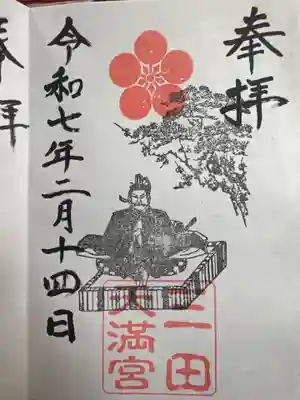 奉拝
三田
天満宮
令和七年二月十四日
拝